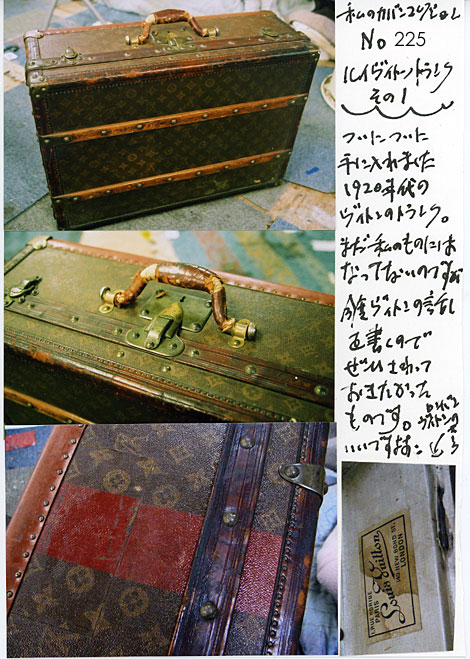 私のカバンコレクション
No 225
ルイヴィトントランク
その1
ついについに
手に入れました
1920年代の
ヴィトンのトランク。
まだ私のものには
なってないのですが
ヴィトンの話し
を書くので
ぜひさわって
おきたかった
ものです。
いいですよねー
1. RUE SCRIBE
PARIS
Louis Vuitton
149 NEW BOND ST.
LONDON